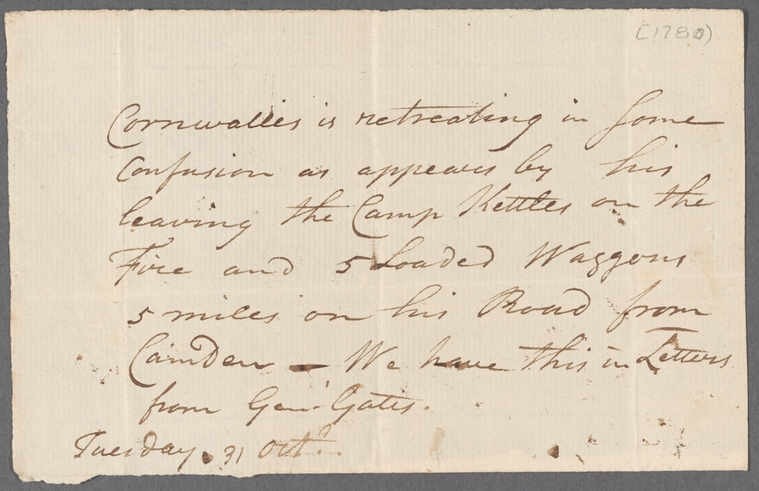 [1780)
Cornwallis is retreating in some
Confusion as appears by his
leaving the Camp Kettles on the
Fire and 5 Loaded Waggons
5 miles on his Road from
Camden — We have this in Letters
from Genl. Gates.
Tuesday. 31 Octr.